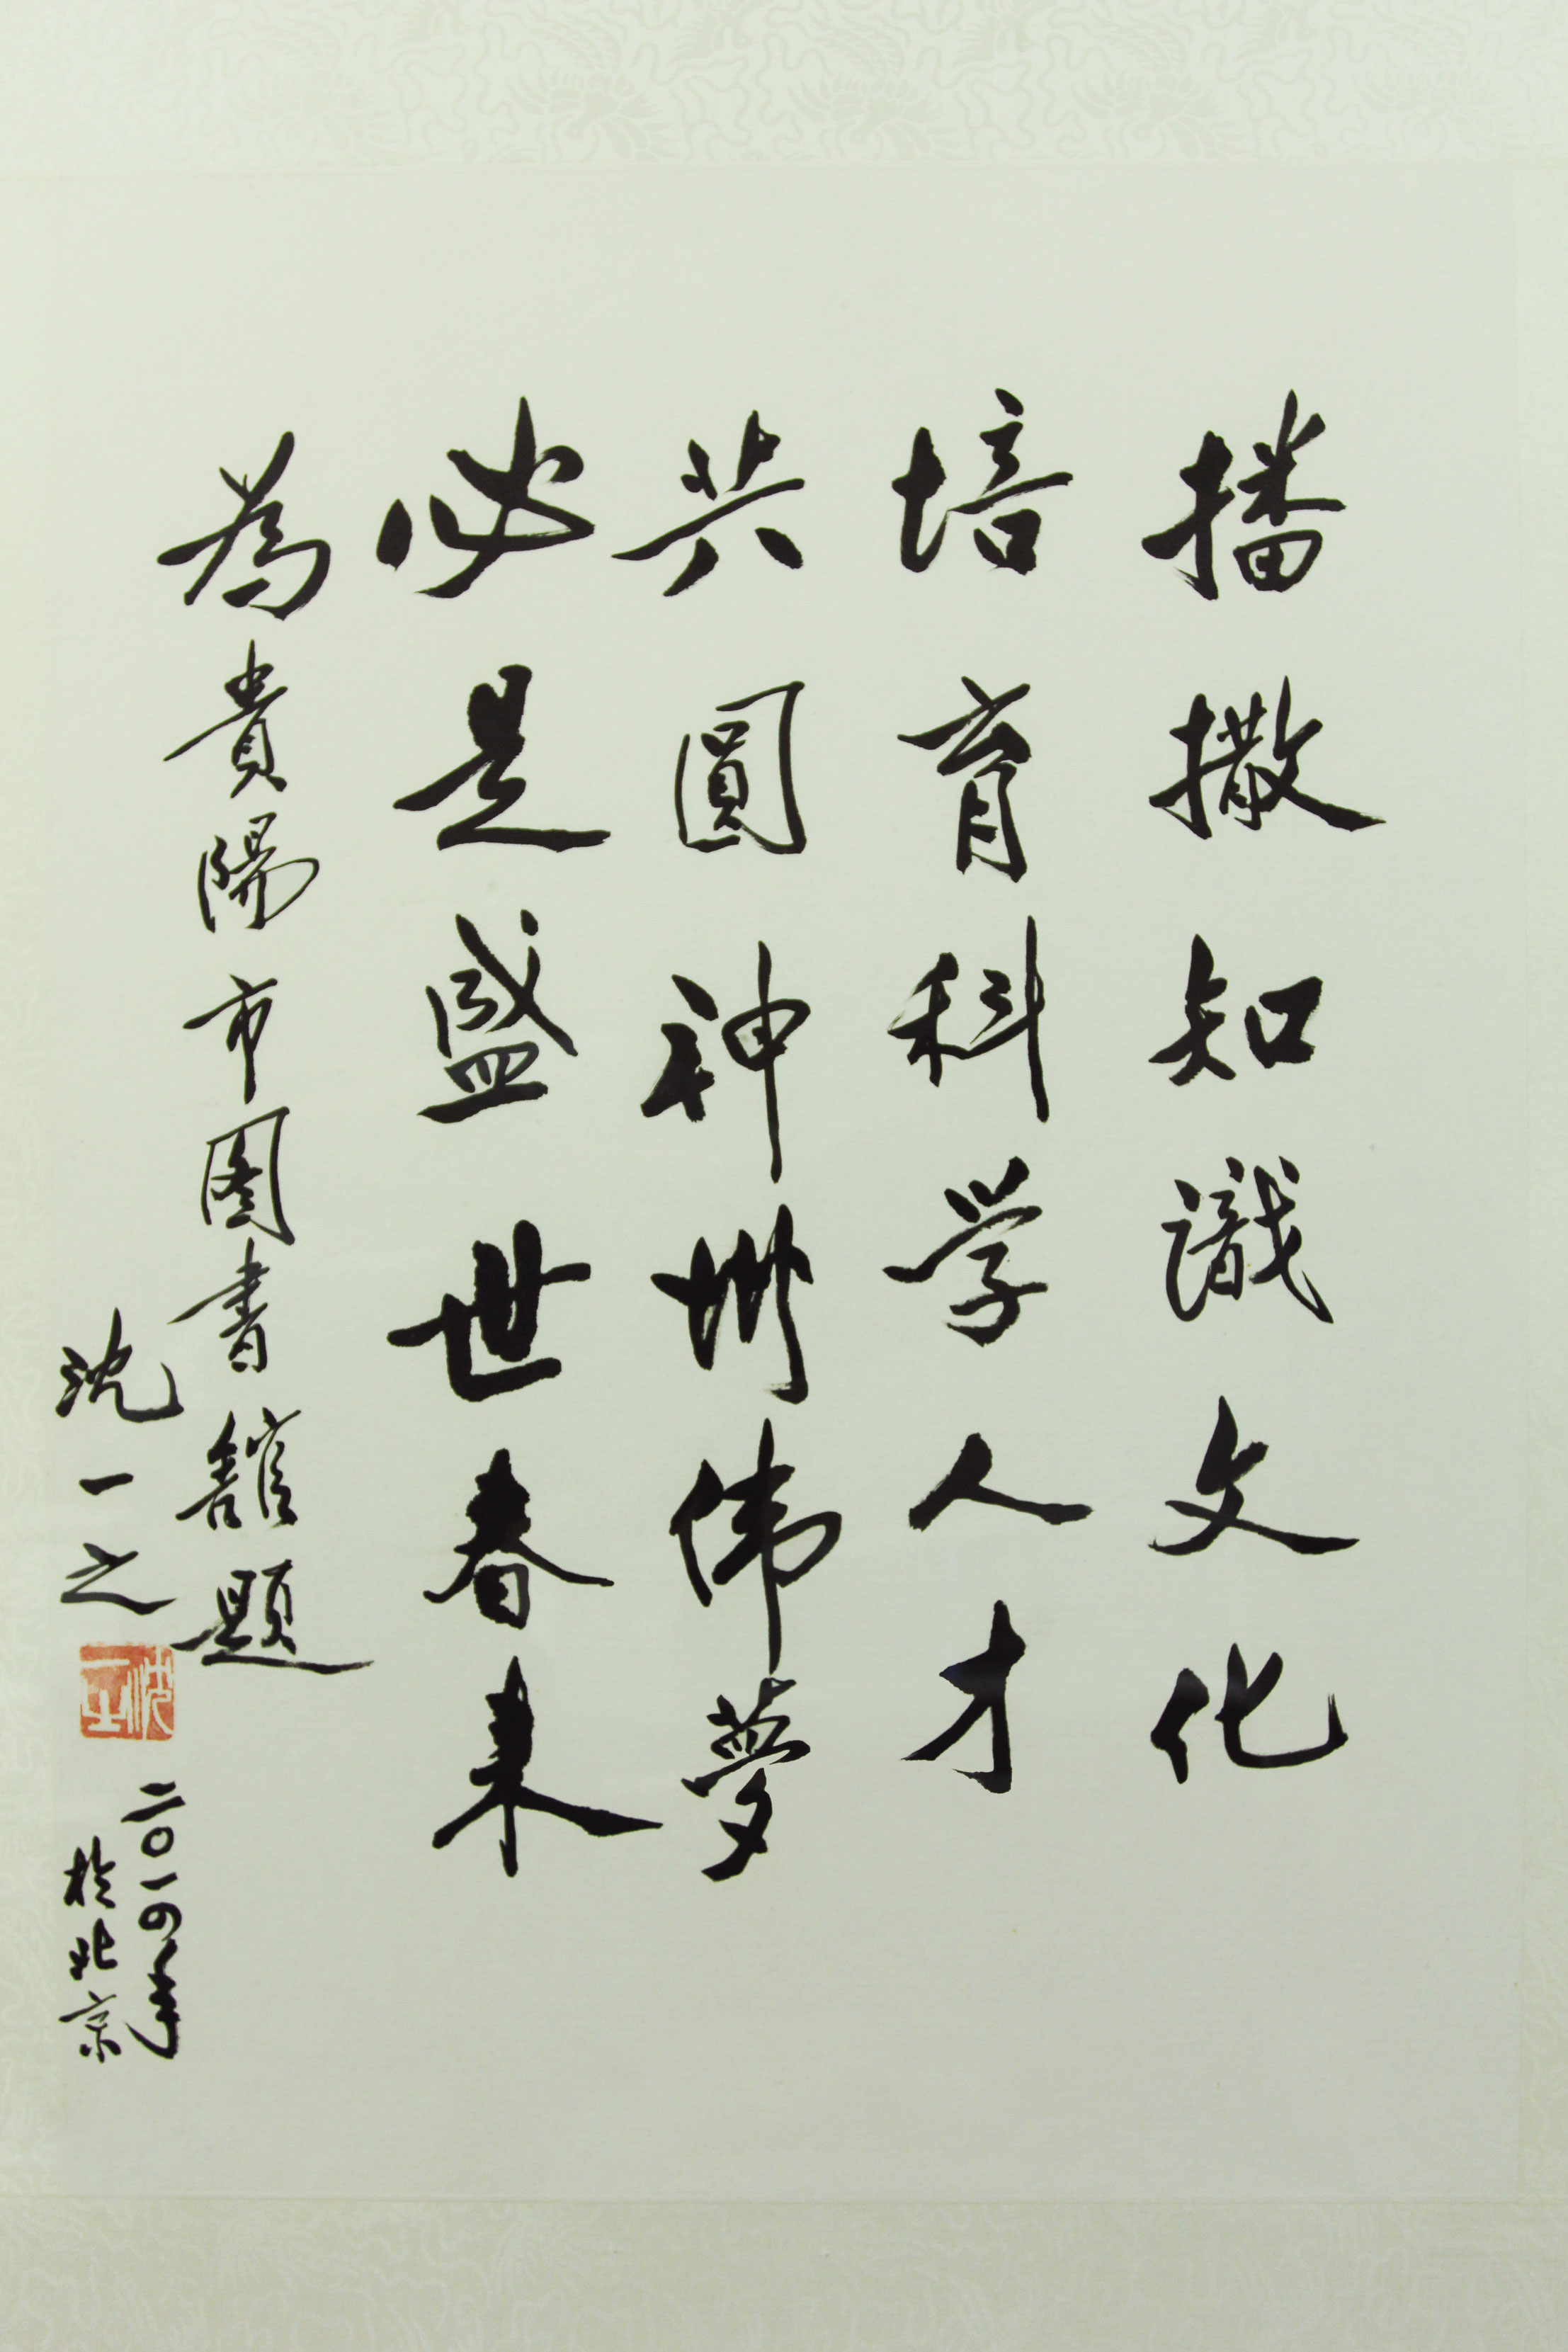 播撒知識文化
培育科学人才
共圓神州伟夢
必是盛世春来
為貴陽市图書館題
沈一之
沈一之
二〇一四年
於北京